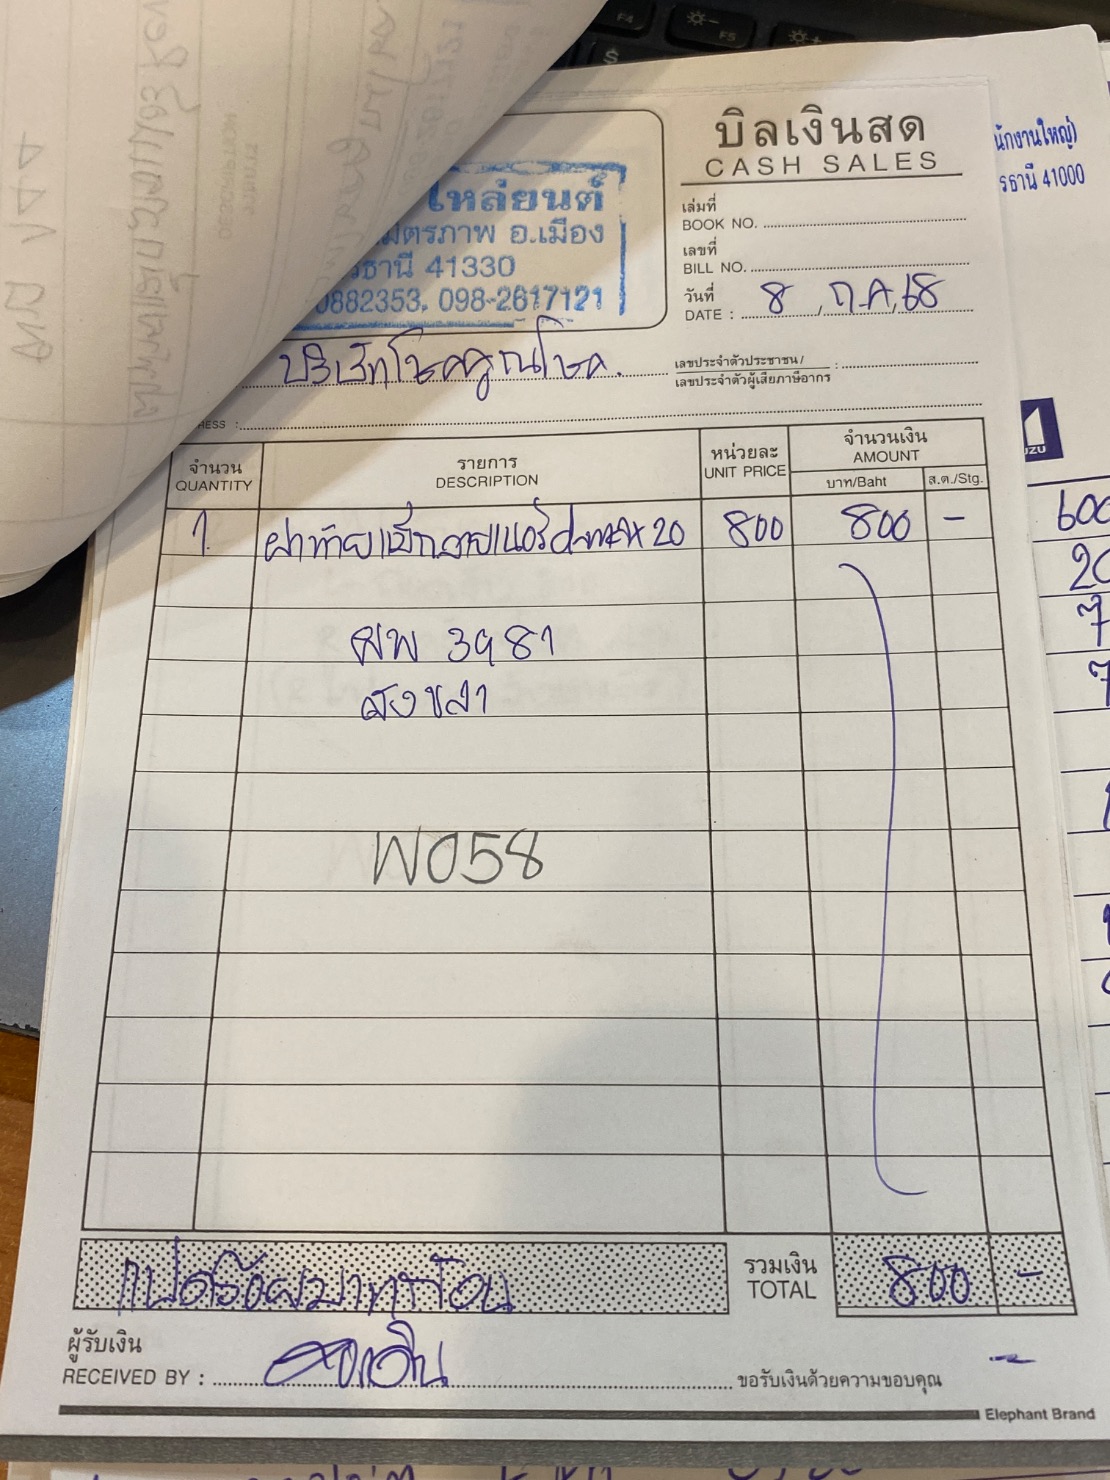 บิลเงินสด
CASH SALES
ไหล่ยนต์
มิตรภาพ อ.เมือง
รธานี 41330
0882353, 098-2617121
เล่มที่
BOOK NO.
เลขที่
BILL NO.
วันที่
DATE : 8 ก.ค. 68
บริษัทโชคคูณโชค.
เลขประจำตัวประชาชน /
เลขประจำตัวผู้เสียภาษีอากร :
RESS :
จำนวน
QUANTITY
รายการ
DESCRIPTION
หน่วยละ
UNIT PRICE
จำนวนเงิน
AMOUNT
บาท/Baht
ส.ต./Stg.
1. ฝาท้าย 20 800 800 -
ผพ 3981
สงขลา
W058
แปดร้อยบาทถ้วน
รวมเงิน
TOTAL
800 -
ผู้รับเงิน
RECEIVED BY :
ขอรับเงินด้วยความขอบคุณ
Elephant Brand
นักงานใหญ่)
รธานี 41000
UZU
600
20
7
7
F4
F5
$